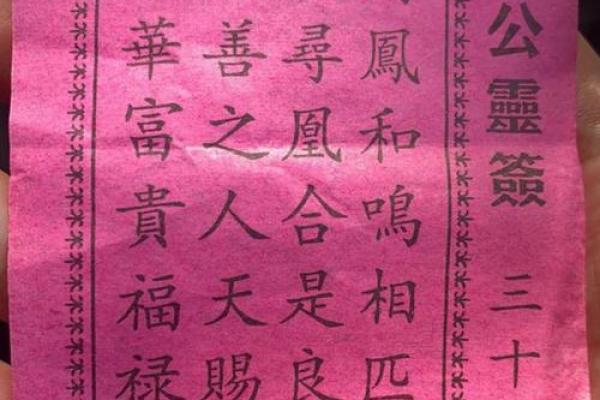 公靈簽 三十
鳳和鳴相匹
尋凰合是良
善之人天賜
華富貴福禄